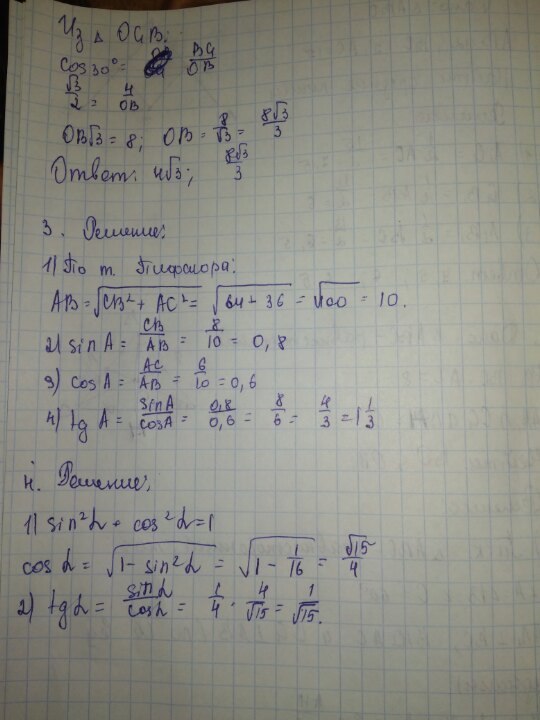 Из △ OGB:
cos 30° = BG/OB
√3/2 = 4/OB
OB√3 = 8; OB = 8/√3 = 8√3/3
Ответ: 4√3; 8√3/3
3. Решение:
1) По т. Пифагора:
AB = √(CB² + AC²) = √(64 + 36) = √100 = 10.
2) sin A = CB/AB = 8/10 = 0,8
3) cos A = AC/AB = 6/10 = 0,6
4) tg A = sin A/cos A = 0,8/0,6 = 8/6 = 4/3 = 1 1/3
4. Решение:
1) sin²α + cos²α = 1
cos α = √(1 - sin²α) = √(1 - 1/16) = √15/4
2) tg α = sin α/cos α = 1/4 · 4/√15 = 1/√15.